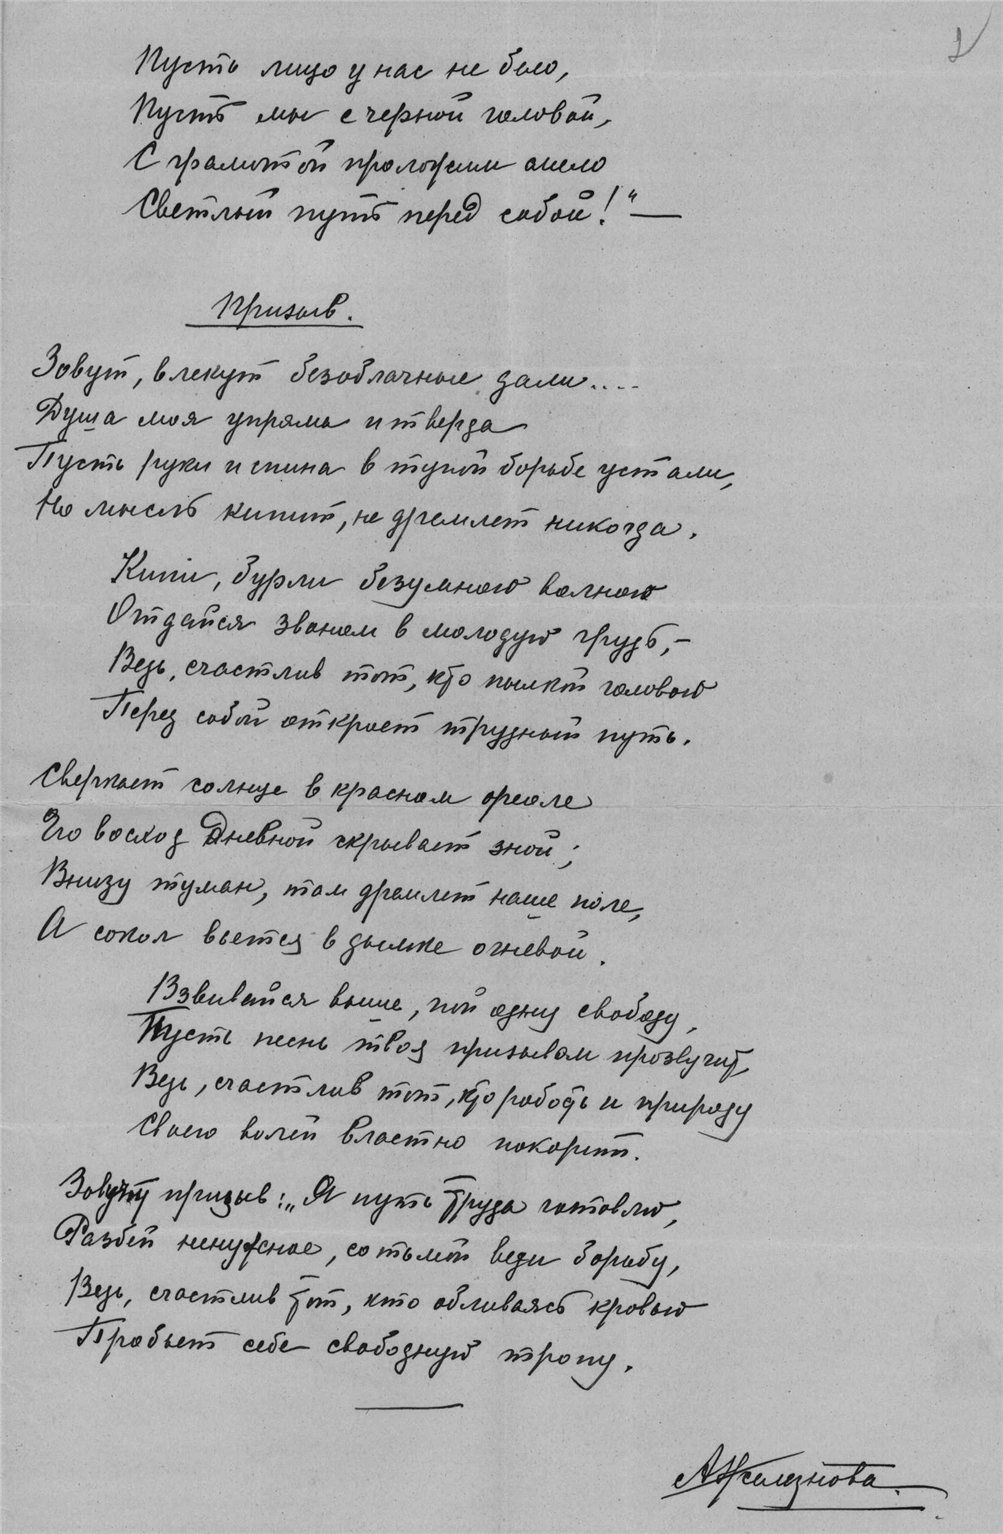 2
Пусть лицо у нас не бело,
Пусть мы с черной головой,
С грамотой проложим смело
Светлый путь перед собой!" —
Призыв.
Зовут, влекут безоблачные дали....
Душа моя упряма и тверда
Пусть руки и спина в тупой борьбе устали,
Но мысль кипит, не дремлет никогда.
Кипи, бурли безумною волною
Отдайся звоном в молодую грудь, –
Ведь, счастлив тот, кто пылкой головою
Перед собой откроет трудный путь.
Сверкает солнце в красном ореоле
Его восход дневной скрывает зной;
Внизу туман, там дремлет наше поле,
А сокол вьется в дымке огневой.
Взвивайся выше, пой одну свободу,
Пусть песнь твоя призывом прозвучит,
Ведь, счастлив тот, кто робость и природу
Своею волей властно покорит.
призыв: „Я путь труда готовлю,
Разбей ненужное, со тьмой веди борьбу,
Ведь, счастлив тот, кто обливаясь кровью
Пробьет себе свободную тропу.
АЖелезнова.